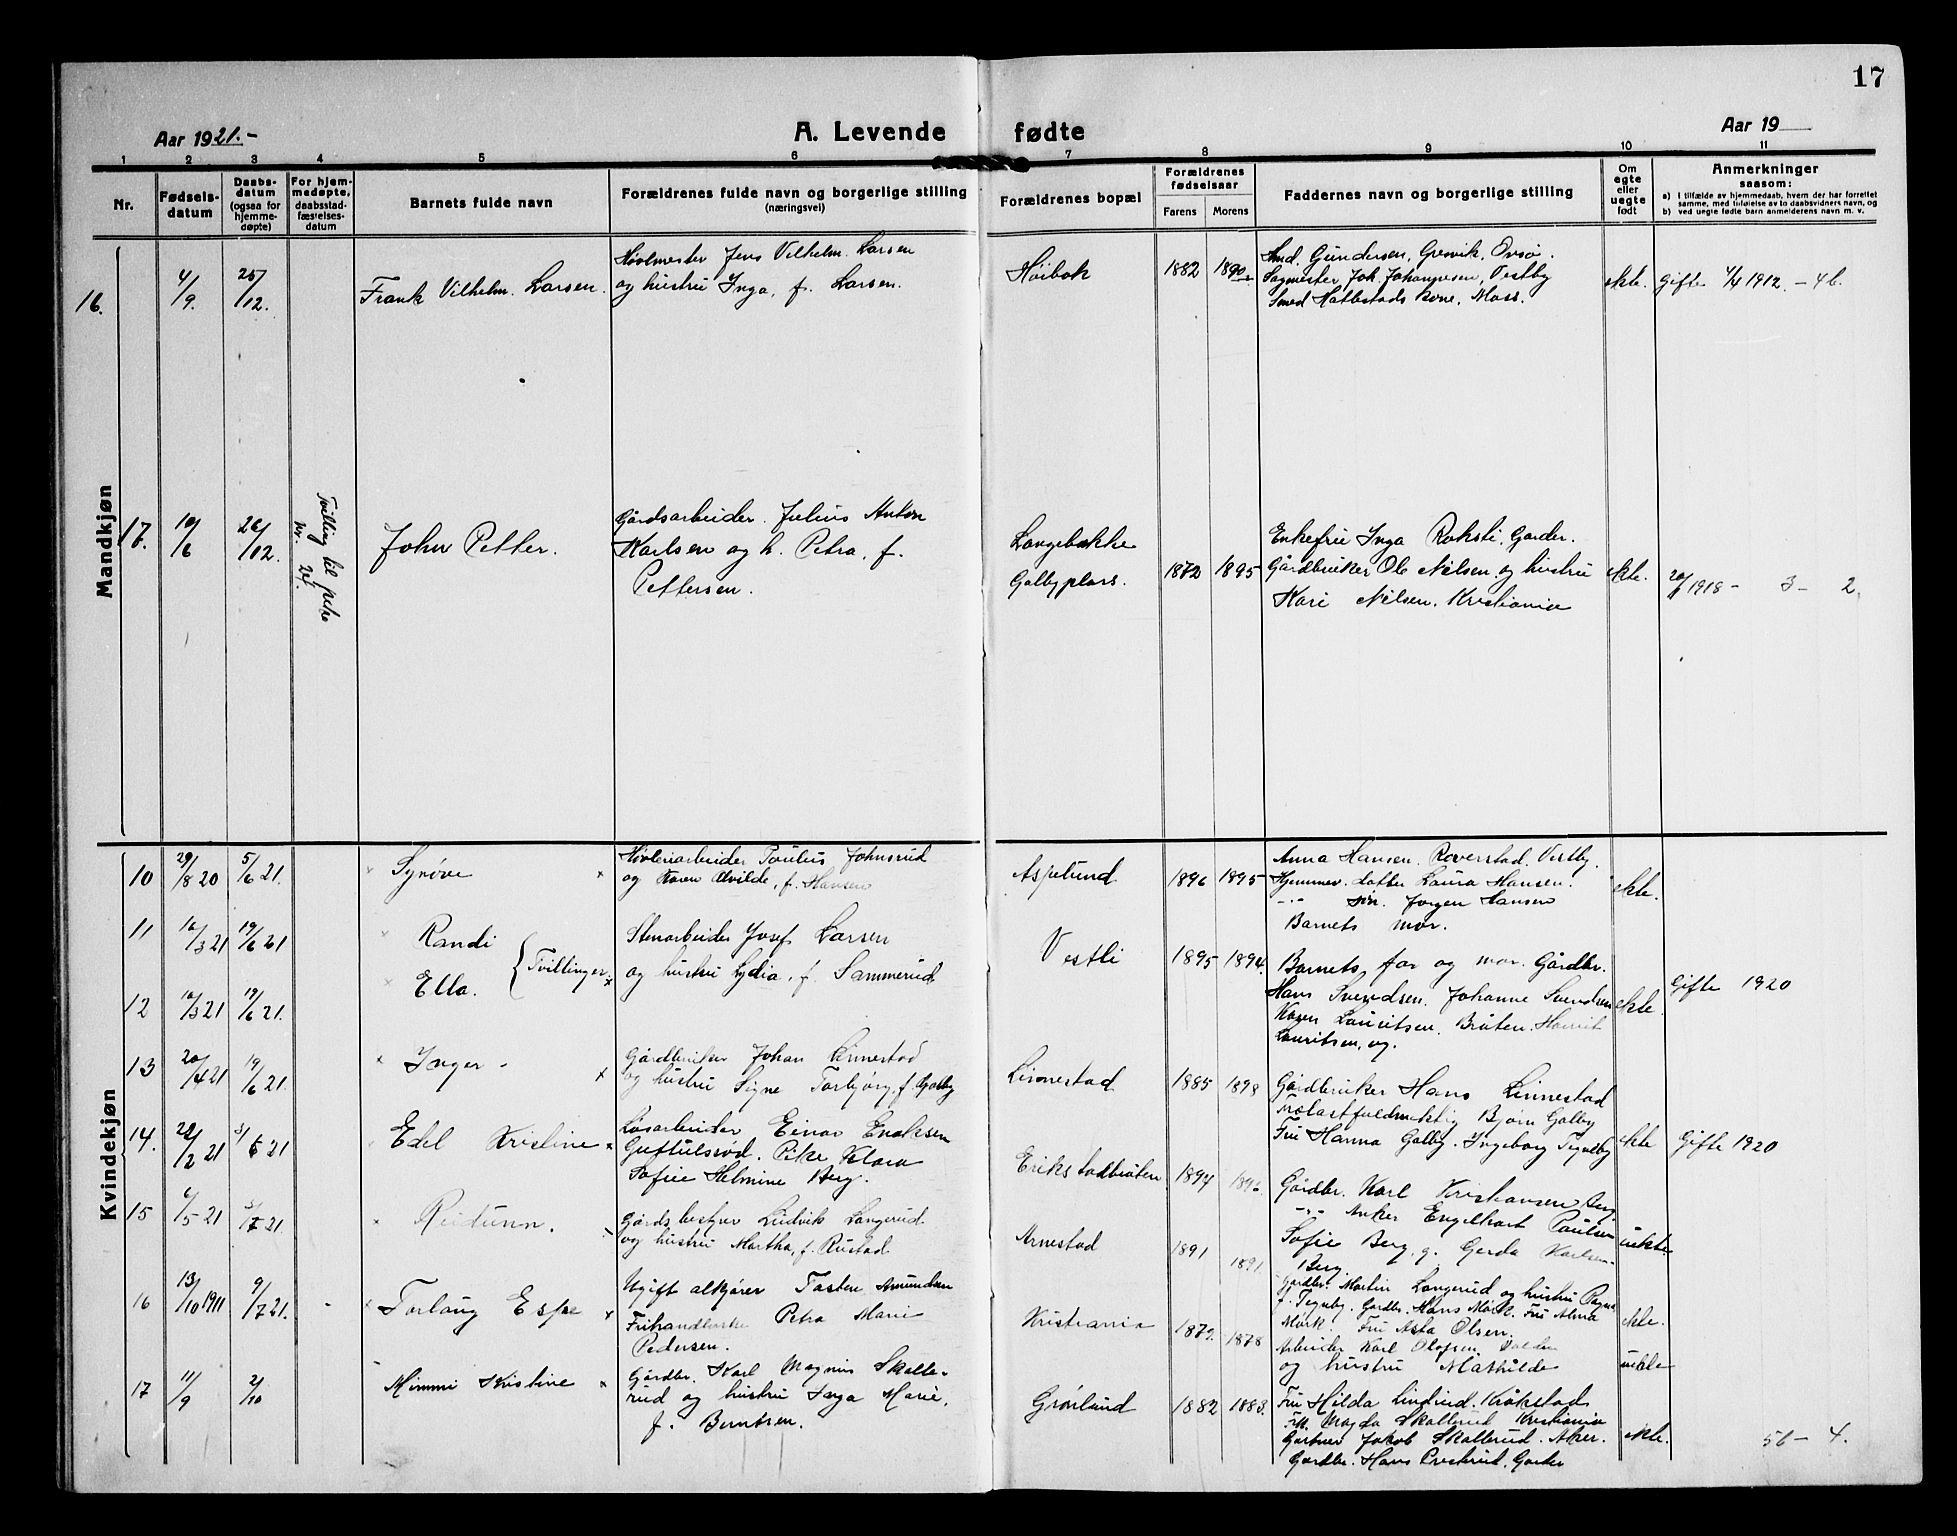 17
Aar 1921.-
A. Levende fødte
Aar 19
1 2 3 4 5 6 7 8 9 10 11
Nr.
Fødselsdatum
Daabsdatum (ogsaa for hjemmedøpte)
For hjemmedøpte, daabsstadfæstelsesdatum
Barnets fulde navn
Forældrenes fulde navn og borgerlige stilling
(næringsvei)
Forældrenes bopæl
Forældrenes fødselsaar
Farens Morens
Faddernes navn og borgerlige stilling
Om egte eller uegte født
Anmerkninger
saasom:
a) I tilfælde av hjemmedaab, hvem der har forrettet samme, med tilføielse av to daabsvidners navn, og
b) ved uegte fødte barn anmelderens navn m. v.
Mandkjøn
16.
4/9.
25/12.
Frank Vilhelm. Larsen.
Høvlmester Jens Vilhelm. Larsen
og hustru Inga, f. Larsen.
Høibok
1882 1890
And. Gundersen, Gresvik, Onsø.
Sagmester Joh. Johannesen, Vestby
Smed Hattestads kone, Moss.
ekte.
Gifte 4/4 1912. - 4 b.
17.
10/6
26/12.
Tvilling til pike
nr. 24.
John Petter.
Gårdsarbeider. Julius Anton
Karlsen og h. Petra, f.
Pettersen.
Langebakke
Galbyplass.
1872 1895
Enkefru Inga Roksti, Garder.
Gårdbruker Ole Nilsen og hustru
Kari Nilsen, Kristiania
ekte.
20/ 1918 - 3 - 2.
Kvindekjøn
10
29/8 20
5/6 21.
× Synøve ×
Høvleriarbeider Paulus Johnsrud
og Karen Alvilde, f. Hansen
Aspelund
1896 1895
Anna Hansen. Roverstad, Vestby.
Hjemmev. datter Laura Hansen.
-"- søn. Jørgen Hansen
Barnets mor.
ekte.
11
16/3 21
19/6 21
× Randi
Tvillinger ×
Stenarbeider Josef Larsen
og hustru Lydia, f. Sammerud
Vestli
1895 1894.
Barnets far og mor. Gårdbr.
Hans Svendsen. Johanne Svendsen
Karen Lauritsen. Bråten. Harriet
Lauritsen, og.
ekte.
Gifte 1920
12
16/3 21
19/6 21.
× Ella.
13
20/4 21
19/6 21.
× Inger - ×
Gårdbruker Johan Linnestad
og hustru Signe Torbjørg, f. Galby
Linnestad
1885 1898
Gårdbruker Hans Linnestad
Trelastfuldmektig Bjørn Galby
Fru Hanna Galby. Ingeborg Tegneby
ekte
Gifte 1920
14.
22/2 21
3/6 21
Edel Kristine ×
Løsarbeider Einar Enoksen
Guftulsrød. Pike Klara
Sofie Helmine Berg.
Erikstadbråten
1894
Gårdbr. Karl Kristiansen, Berg
-"- Anker Engelhart Paulsen
Sofie Berg, g. Gerda Karlsen-
Berg.
uekte.
15
6/5 21
3/7 21.
× Reidunn.
Gårdsbestyrer Ludvik Langerud
og hustru Martha, f. Rustad.
Arnestad
1891 1891
Gårdbr. Martin Langerud og hustru Ragna
f. Tegneby. Gårdbr. Hans Mørk. Fru Alma
Mørk Fru Asta Olsen.
ekte.
16
13/10 1911
9/7 21.
-
× Torlaug Espe ×
Ugift altkjører Torsten Amundsen
Frihandlerske Petra Marie
Pedersen.
Kristiania
1879. 1878
Arbeider Karl Olofsen,
og hustru Mathilde
uekte
17
11/9
2/10
Mimmi Kristine ×
Gårdbr. Karl Magnus Skolle-
rud og hustru Inga Marie,
f. Berntsen.
Grønlund
1882 1883.
Fru Hilda Lindrud. Kråkstad
Frk. Magda Skollerud Kristiania
Gartner Jakob Skollerud. Aker.
Gårdbr. Hans Presterud, Garder
ekte.
5b - 4.